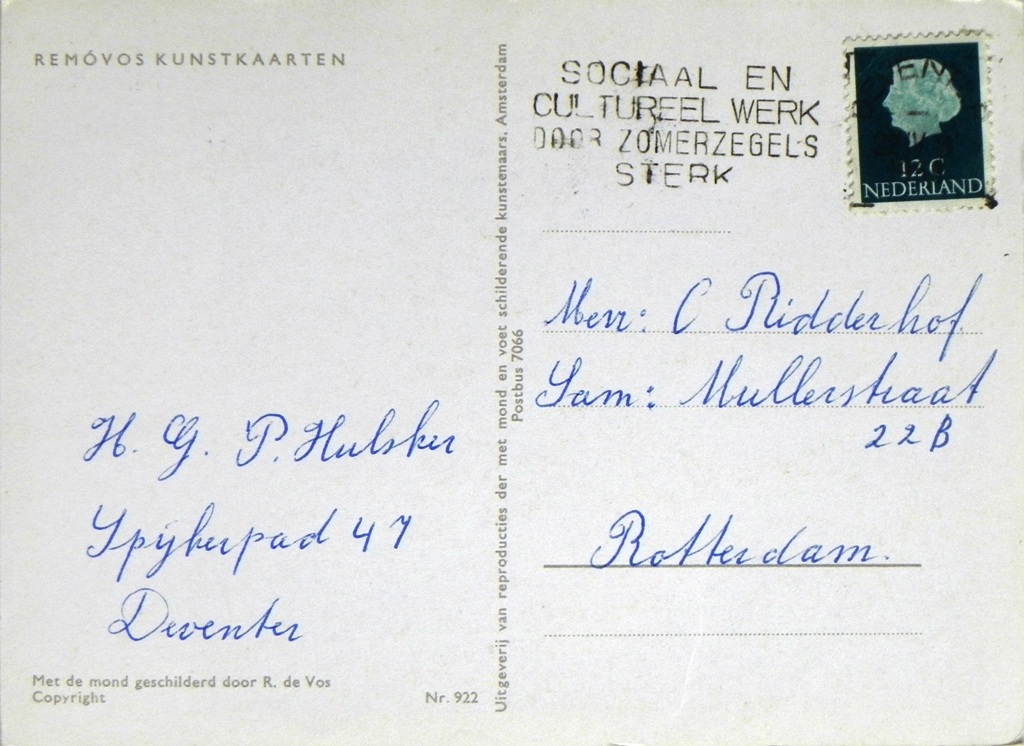 REMÓVOS KUNSTKAARTEN
H. G. P. Hulsker
Spijkerpad 47
Deventer
Met de mond geschilderd door R. de Vos
Copyright
Nr. 922
Uitgeverij van reproducties der met mond en voet schilderende kunstenaars, Amsterdam
Postbus 7066
SOCIAAL EN
CULTUREEL WERK
DOOR ZOMERZEGELS
STERK
12 C
NEDERLAND
Mevr: C Ridderhof
Sam: Mullerstraat
22B
Rotterdam.